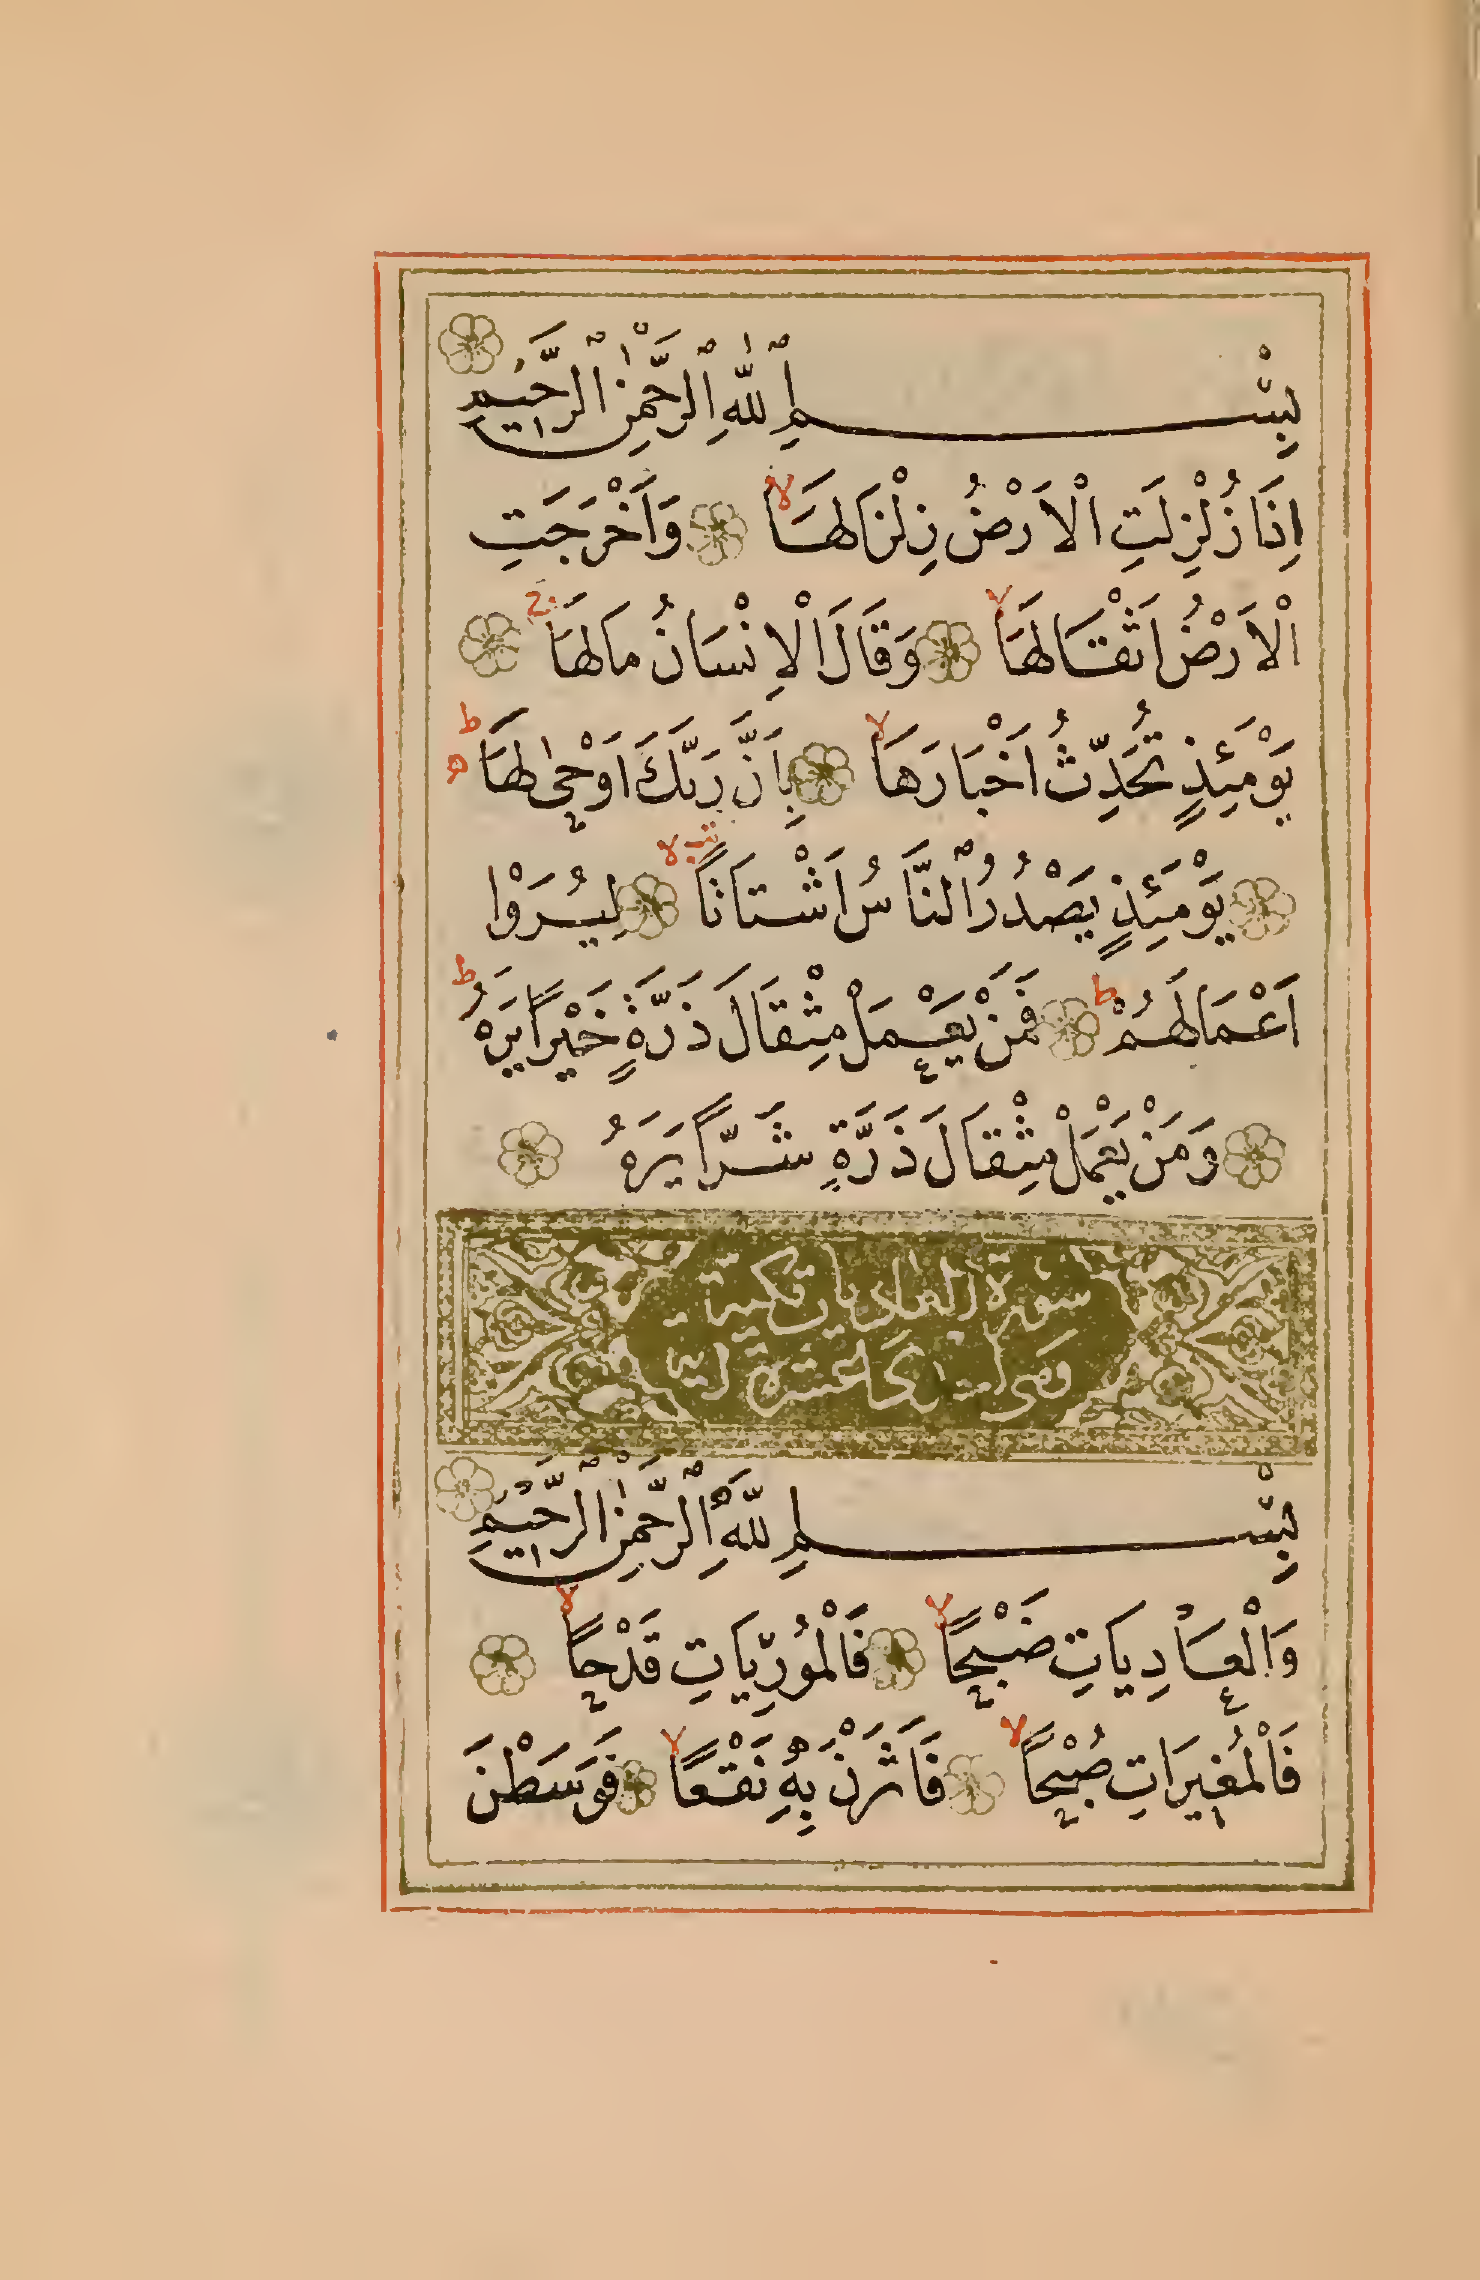 بِسْمِ اللّٰهِ الرَّحْمٰنِ الرَّحِيمِ
اِذَا زُلْزِلَتِ الْاَرْضُ زِلْزَالَهَا لا وَاَخْرَجَتِ
الْاَرْضُ اَثْقَالَهَا لا وَقَالَ الْاِنْسَانُ مَالَهَا ج
يَوْمَئِذٍ تُحَدِّثُ اَخْبَارَهَا لا بِاَنَّ رَبَّكَ اَوْحٰى لَهَا ط ه
يَوْمَئِذٍ يَصْدُرُ النَّاسُ اَشْتَاتًا لا لِيُرَوْا
اَعْمَالَهُمْ ط فَمَنْ يَعْمَلْ مِثْقَالَ ذَرَّةٍ خَيْرًا يَرَهُ ط
وَمَنْ يَعْمَلْ مِثْقَالَ ذَرَّةٍ شَرًّا يَرَهُ
سورة العاديات مكية
وهى احدى عشرة اية
بِسْمِ اللّٰهِ الرَّحْمٰنِ الرَّحِيمِ
وَالْعَادِيَاتِ ضَبْحًا لا فَالْمُورِيَاتِ قَدْحًا لا
فَالْمُغِيرَاتِ صُبْحًا لا فَاَثَرْنَ بِهِ نَقْعًا لا فَوَسَطْنَ